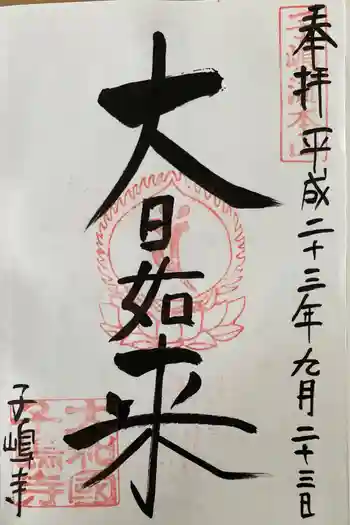 奉拝 平成二十三年九月二十三日
大日如来
子嶋寺